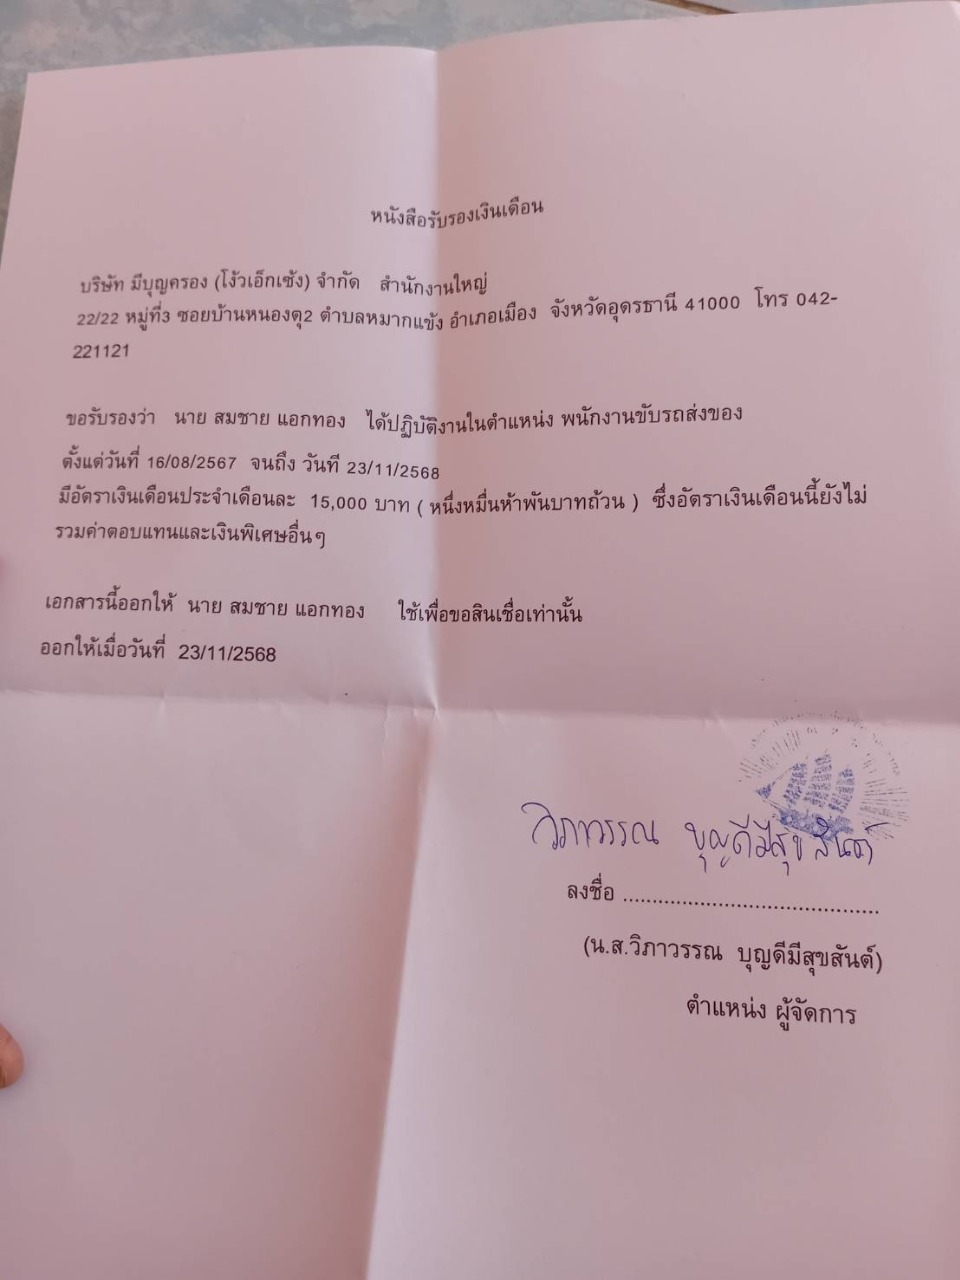 หนังสือรับรองเงินเดือน
บริษัท มีบุญครอง (โง้วเอ็กเซ้ง) จำกัด สำนักงานใหญ่
22/22 หมู่ที่3 ซอยบ้านหนองตุ2 ตำบลหมากแข้ง อำเภอเมือง จังหวัดอุดรธานี 41000 โทร 042-
221121
ขอรับรองว่า นาย สมชาย แอกทอง ได้ปฏิบัติงานในตำแหน่ง พนักงานขับรถส่งของ
ตั้งแต่วันที่ 16/08/2567 จนถึง วันที 23/11/2568
มีอัตราเงินเดือนประจำเดือนละ 15,000 บาท ( หนึ่งหมื่นห้าพันบาทถ้วน ) ซึ่งอัตราเงินเดือนนี้ยังไม่
รวมค่าตอบแทนและเงินพิเศษอื่นๆ
เอกสารนี้ออกให้ นาย สมชาย แอกทอง ใช้เพื่อขอสินเชื่อเท่านั้น
ออกให้เมื่อวันที่ 23/11/2568
วิภาวรรณ บุญดีมีสุขสันต์
ลงชื่อ ............................................
(น.ส.วิภาวรรณ บุญดีมีสุขสันต์)
ตำแหน่ง ผู้จัดการ